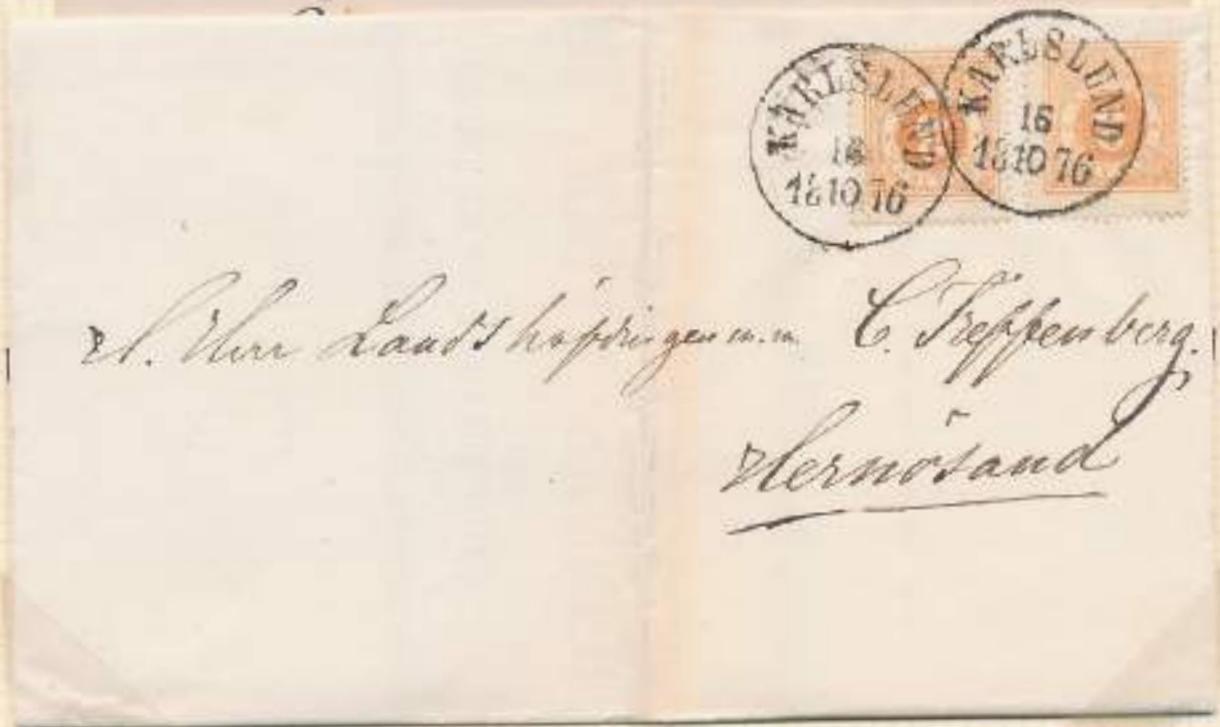 KARLSLUND
16
18 10 76
KARLSLUND
16
18 10 76
H. Herr Landshöfdingen m.m C. Treffenberg.
Hernösand